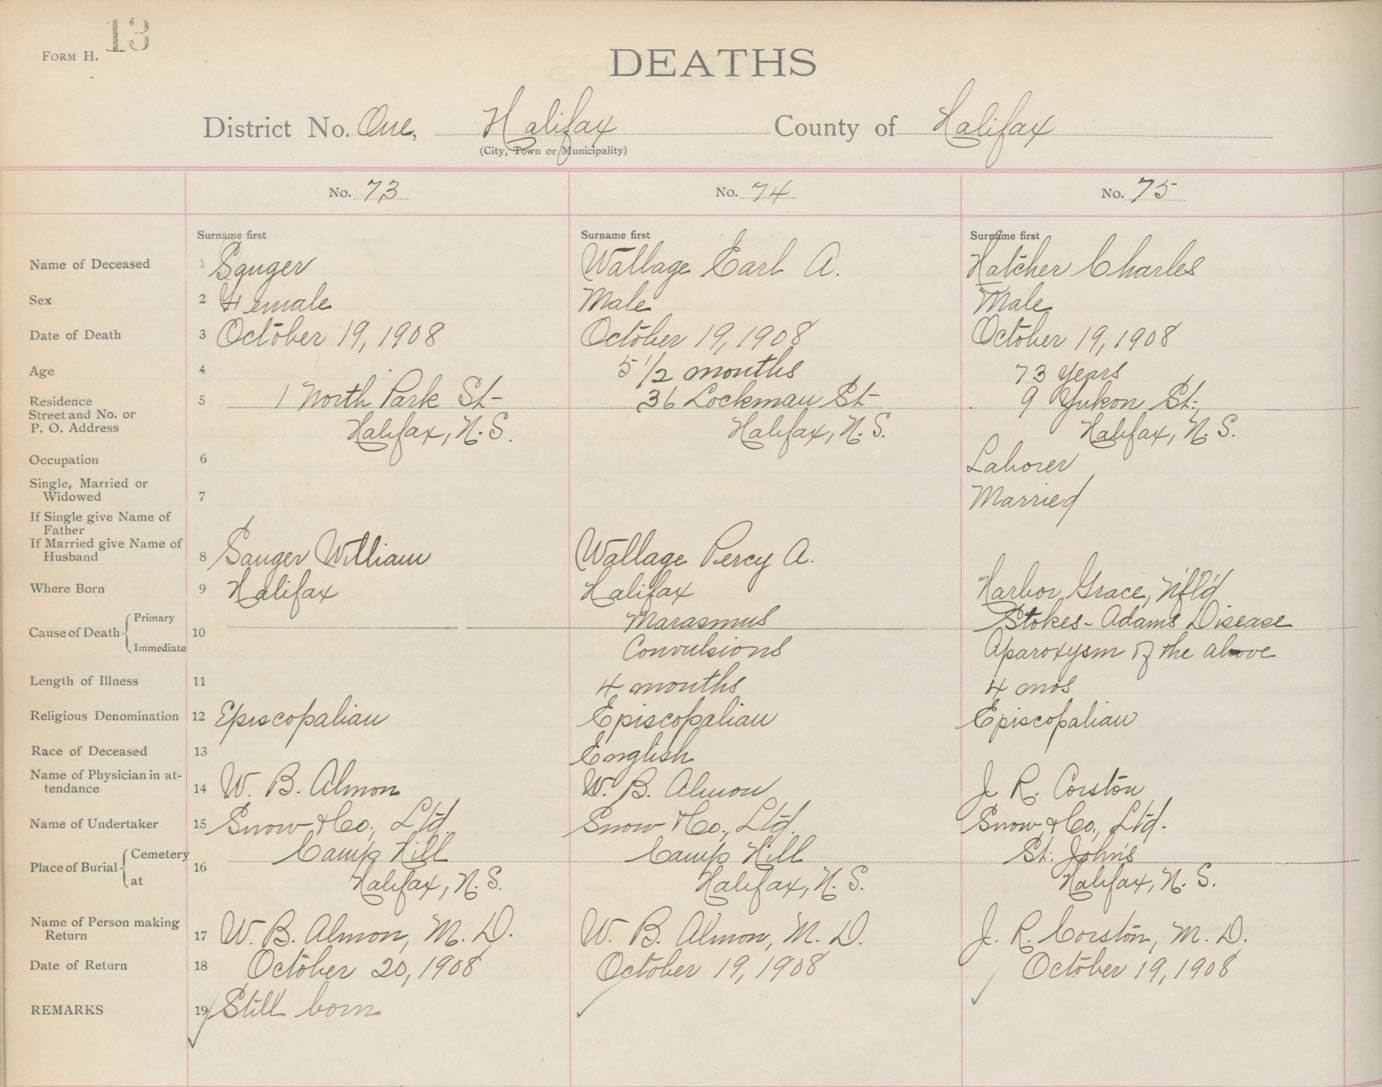 13
FORM H.
DEATHS
District No. One, Halifax County of Halifax
(City, Town or Municipality)
No. 73 No. 74 No. 75
Surname first Surname first Surname first
Name of Deceased 1 Sauger Wallage Earl A. Hatcher Charles
Sex 2 Female Male Male
Date of Death 3 October 19, 1908 October 19, 1908 October 19, 1908
Age 4 5 1/2 months 73 years
Residence 5 1 North Park St- 36 Lockman St- 9 Yukon St.,
Street and No. or
P. O. Address Halifax, N.S. Halifax, N.S. Halifax, N.S.
Occupation 6 Laborer
Single, Married or
Widowed 7 Married
If Single give Name of
Father
If Married give Name of
Husband 8 Sauger William Wallage Percy A.
Where Born 9 Halifax Halifax Harbor Grace, Nfl'd
Cause of Death Primary 10 Marasmus Stokes-Adams Disease
Immediate Convulsions Aparoxysm of the above
Length of Illness 11 4 months 4 mos
Religious Denomination 12 Episcopalian Episcopalian Episcopalian
Race of Deceased 13 English
Name of Physician in at-
tendance 14 W. B. Almon W. B. Almon J. R. Corston
Name of Undertaker 15 Snow & Co., Ltd. Snow & Co., Ltd. Snow & Co., Ltd.
Place of Burial Cemetery 16 Camp Hill Camp Hill St. John's
at Halifax, N.S. Halifax, N.S. Halifax, N.S.
Name of Person making
Return 17 W. B. Almon, M.D. W. B. Almon, M.D. J. R. Corston, M.D.
Date of Return 18 October 20, 1908 October 19, 1908 October 19, 1908
REMARKS 19 Still born